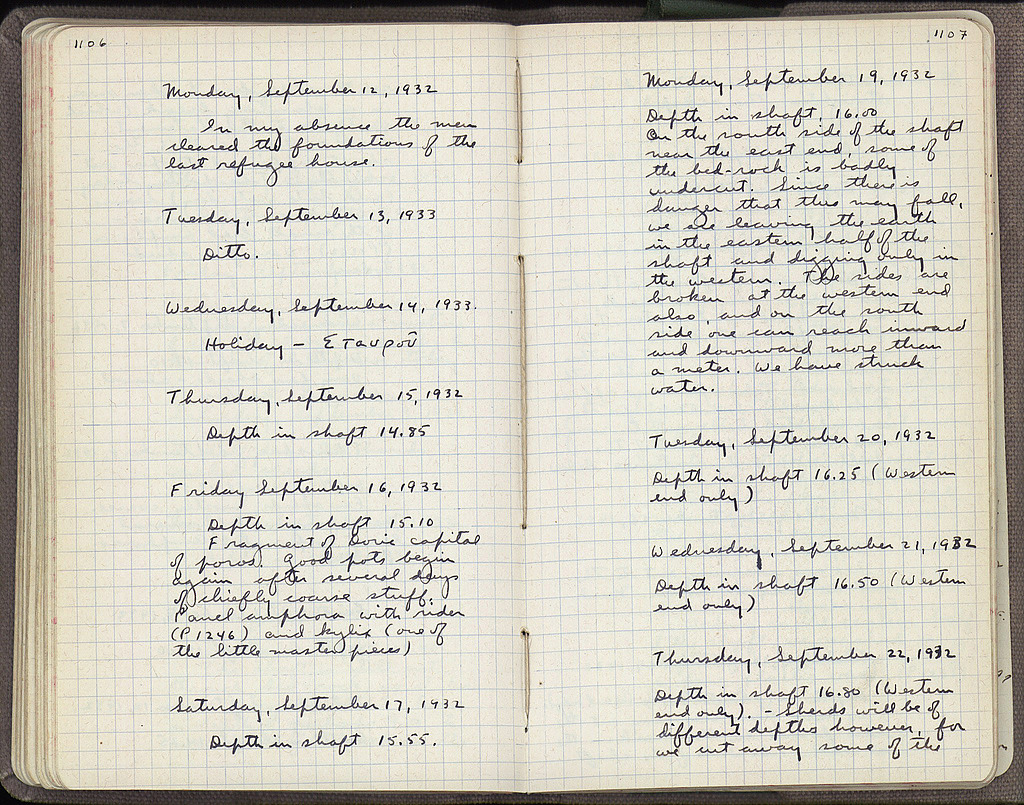 1106
Monday, September 12, 1932
In my absence the men
cleared the foundations of the
last refugee house.
Tuesday, September 13, 1933
Ditto.
Wednesday, September 14, 1933.
Holiday – Σταυροῦ
Thursday, September 15, 1932
Depth in shaft 14.85
Friday September 16, 1932
Depth in shaft 15.10
Fragment of Doric capital
of poros. Good pots begin
again after several days
of chiefly coarse stuff:
Panel amphora with rider
(P 1246) and kylix (one of
the little master pieces)
Saturday, September 17, 1932
Depth in shaft 15.55.
1107
Monday, September 19, 1932
Depth in shaft, 16.00
On the south side of the shaft
near the east end, some of
the bed-rock is badly
undercut. Since there is
danger that this may fall,
we are leaving the earth
in the eastern half of the
shaft and digging only in
the western. The sides are
broken at the western end
also, and on the south
side one can reach inward
and downward more than
a meter. We have struck
water.
Tuesday, September 20, 1932
Depth in shaft 16.25 (Western
end only)
Wednesday, September 21, 1932
Depth in shaft 16.50 (Western
end only)
Thursday, September 22, 1932
Depth in shaft 16.80 (Western
end only). – Sherds will be of
different depths however, for
we cut away some of the